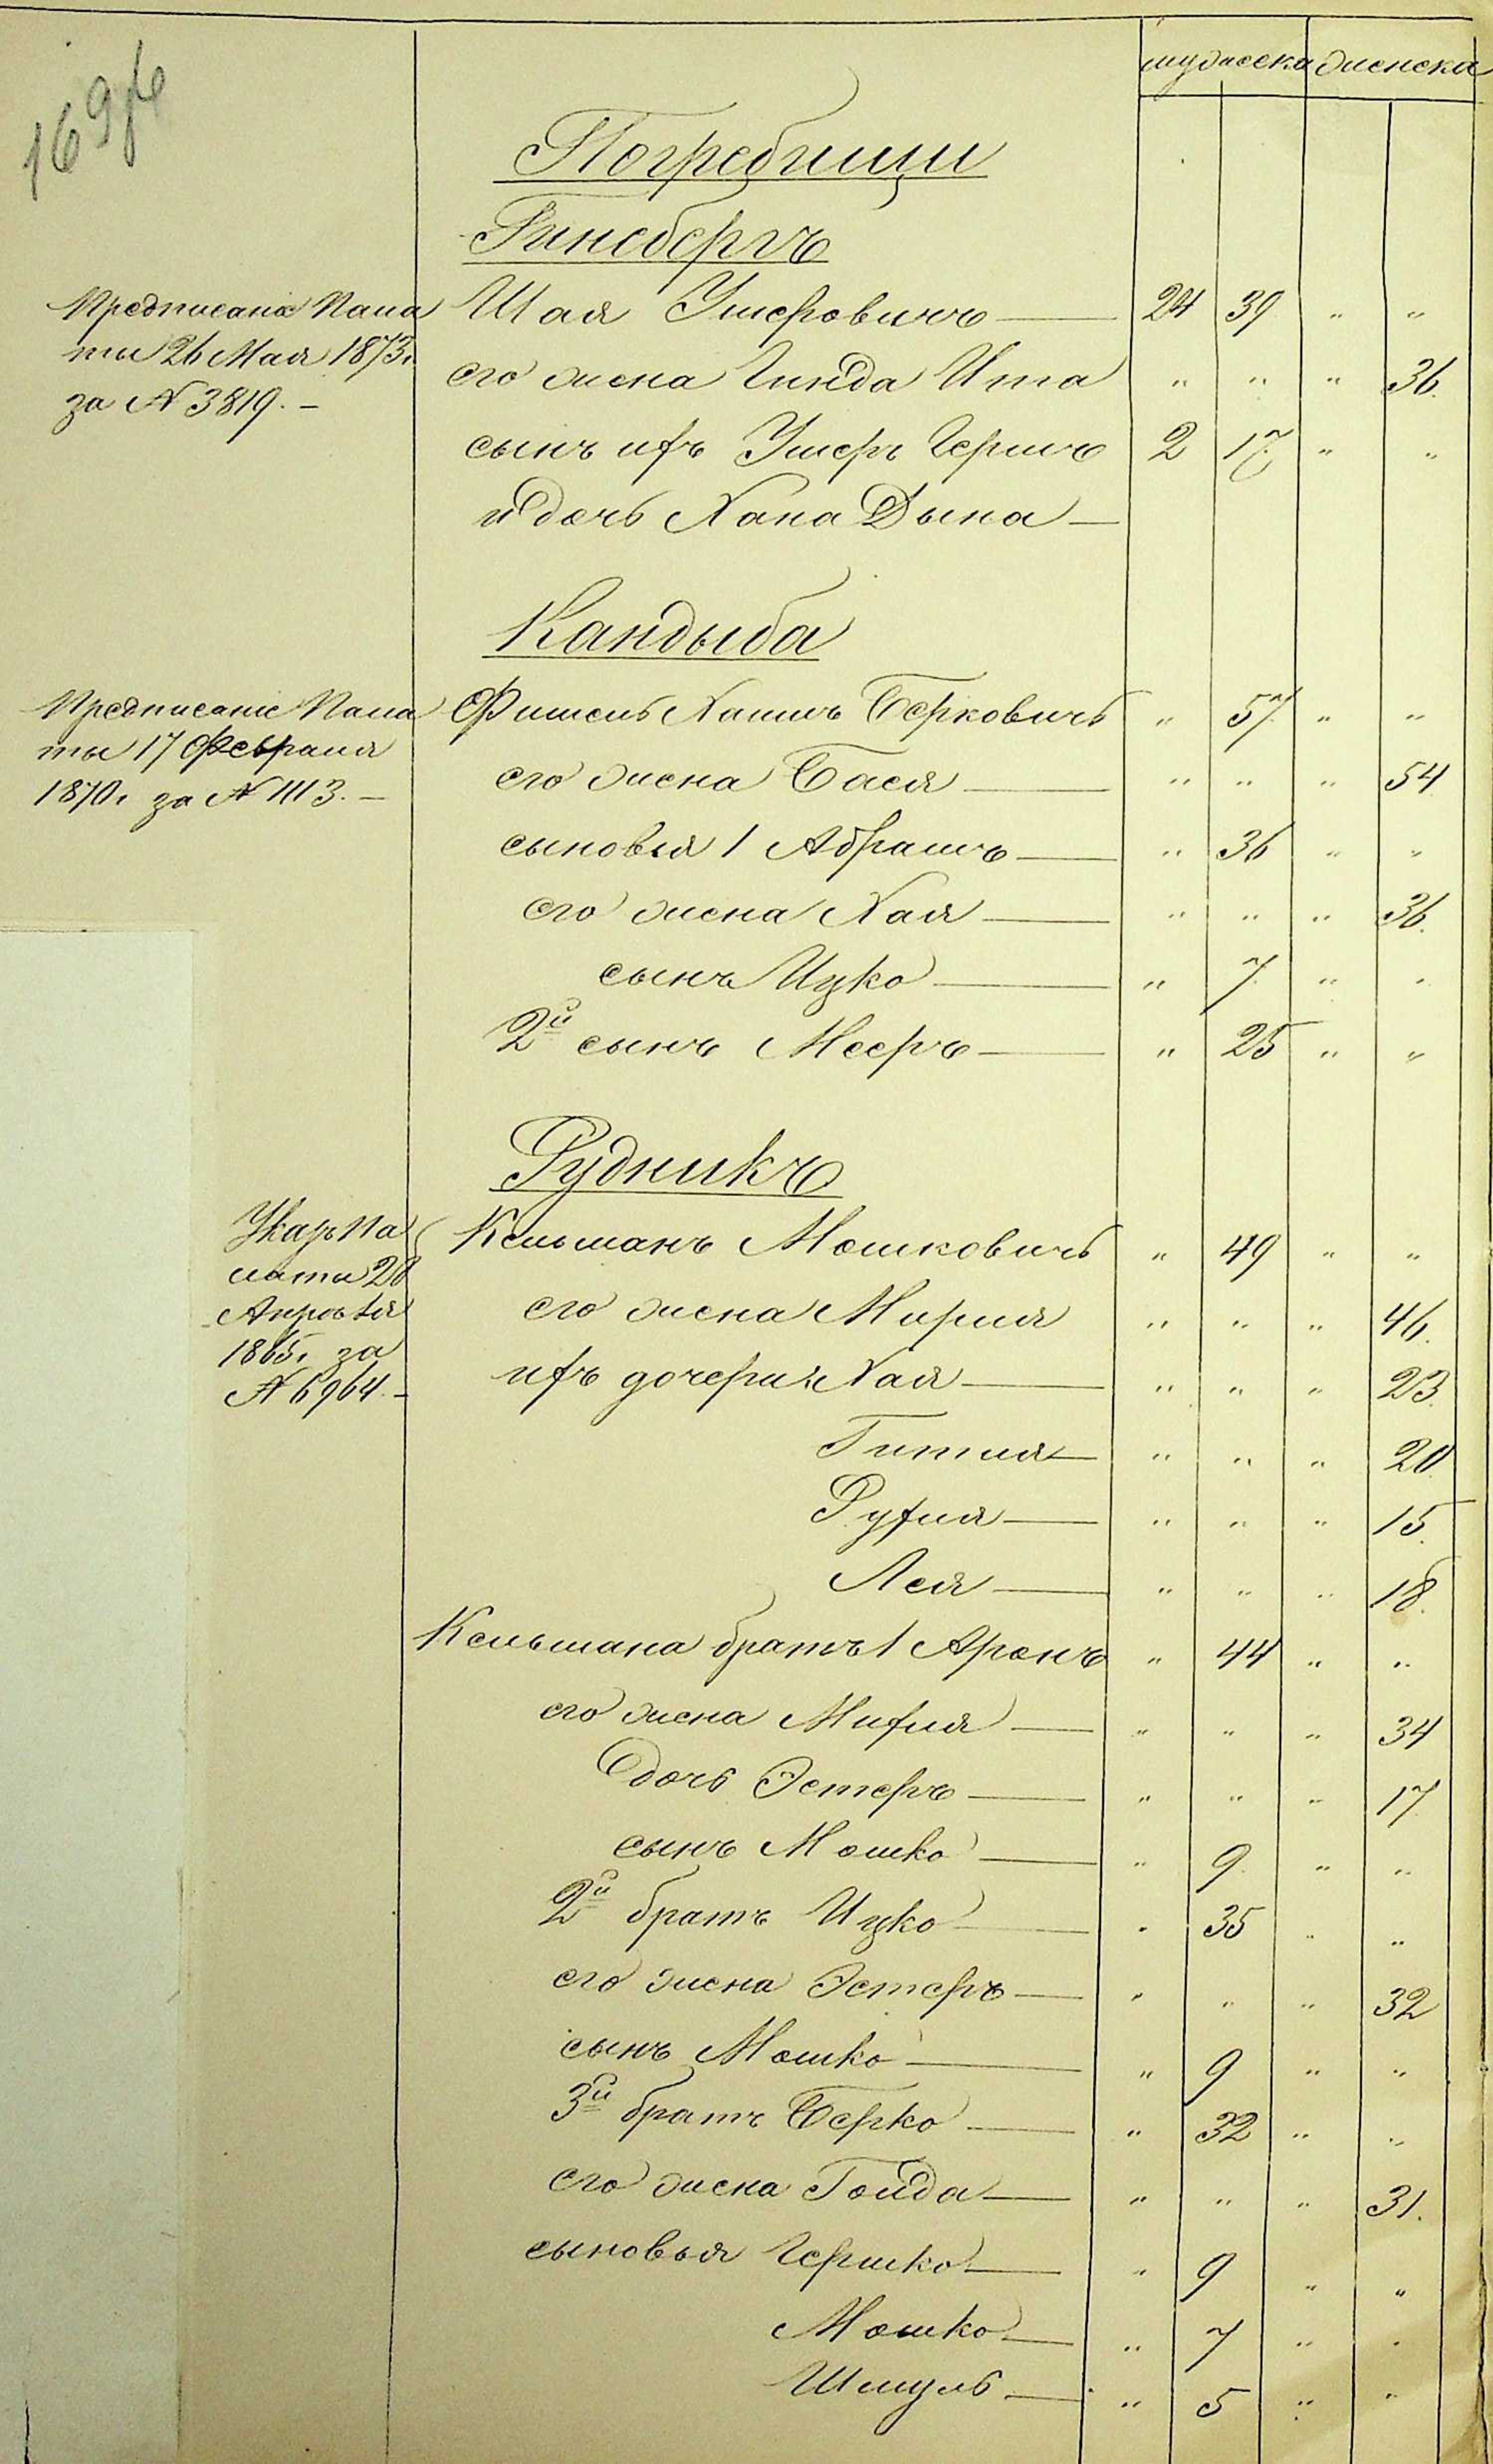 мужеска женска
Погребищи
Гинсбергъ
Предписаніе Пала Шая Ушеровичъ — 24 39 " "
ты 26 Мая 1873г. его жена Гинда Ита " " " 36.
за № 3819. — сынъ ихъ Ушеръ Гершъ 2 17. " "
и дочь Хана Дына —
Кандыба
Предписаніе Пала Фишель Хаимъ Берковичъ " 57. " "
ты 17 Февраля его жена Бася — " " " 54
1870г. за № 1113. —
сыновья 1 Абрамъ — " 36 " "
его жена Хая — " " " 36.
сынъ Ицко — " 7. " "
2й сынъ Мееръ — " 25 " "
Рудникъ
Указъ Па Кельманъ Мошковичъ " 49 " "
латы 28 его жена Мирля " " " 46.
Апрѣля
1865г. за ихъ дочери: Хая — " " " 23.
№ 6964. —
Гитля — " " " 20
Рухля — " " " 15.
Лея — " " " 18.
Кельмана братъ 1 Аронъ " 44 " "
его жена Михля — " " " 34
дочь Эстеръ — " " " 17.
сынъ Мошко — " 9. " "
2й братъ Ицко — " 35 " "
его жена Эстеръ — " " " 32
сынъ Мошко — " 9 " "
3й братъ Берко — " 32 " "
его жена Гольда — " " " 31.
сыновья Гершко — " 9 " "
Мошко — " 7 " "
Шмуль — " 5 " "